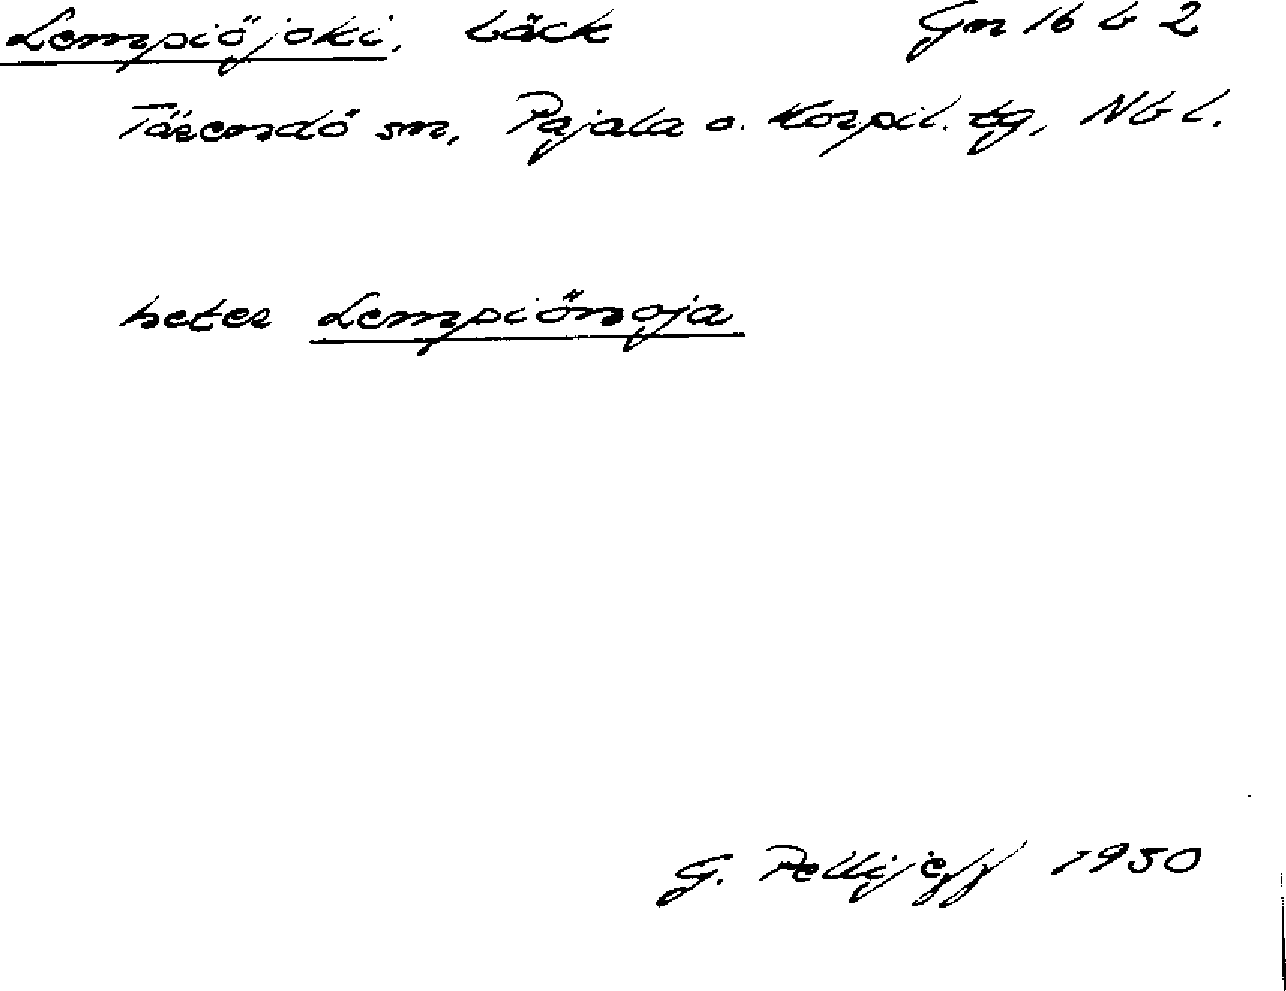 Lempiöjoki, bäck Gn 16 b 2
Tärendö sn, Pajala o. Korpil. tg, Nb l.
heter Lempiönoja
G. Pellijeff 1950